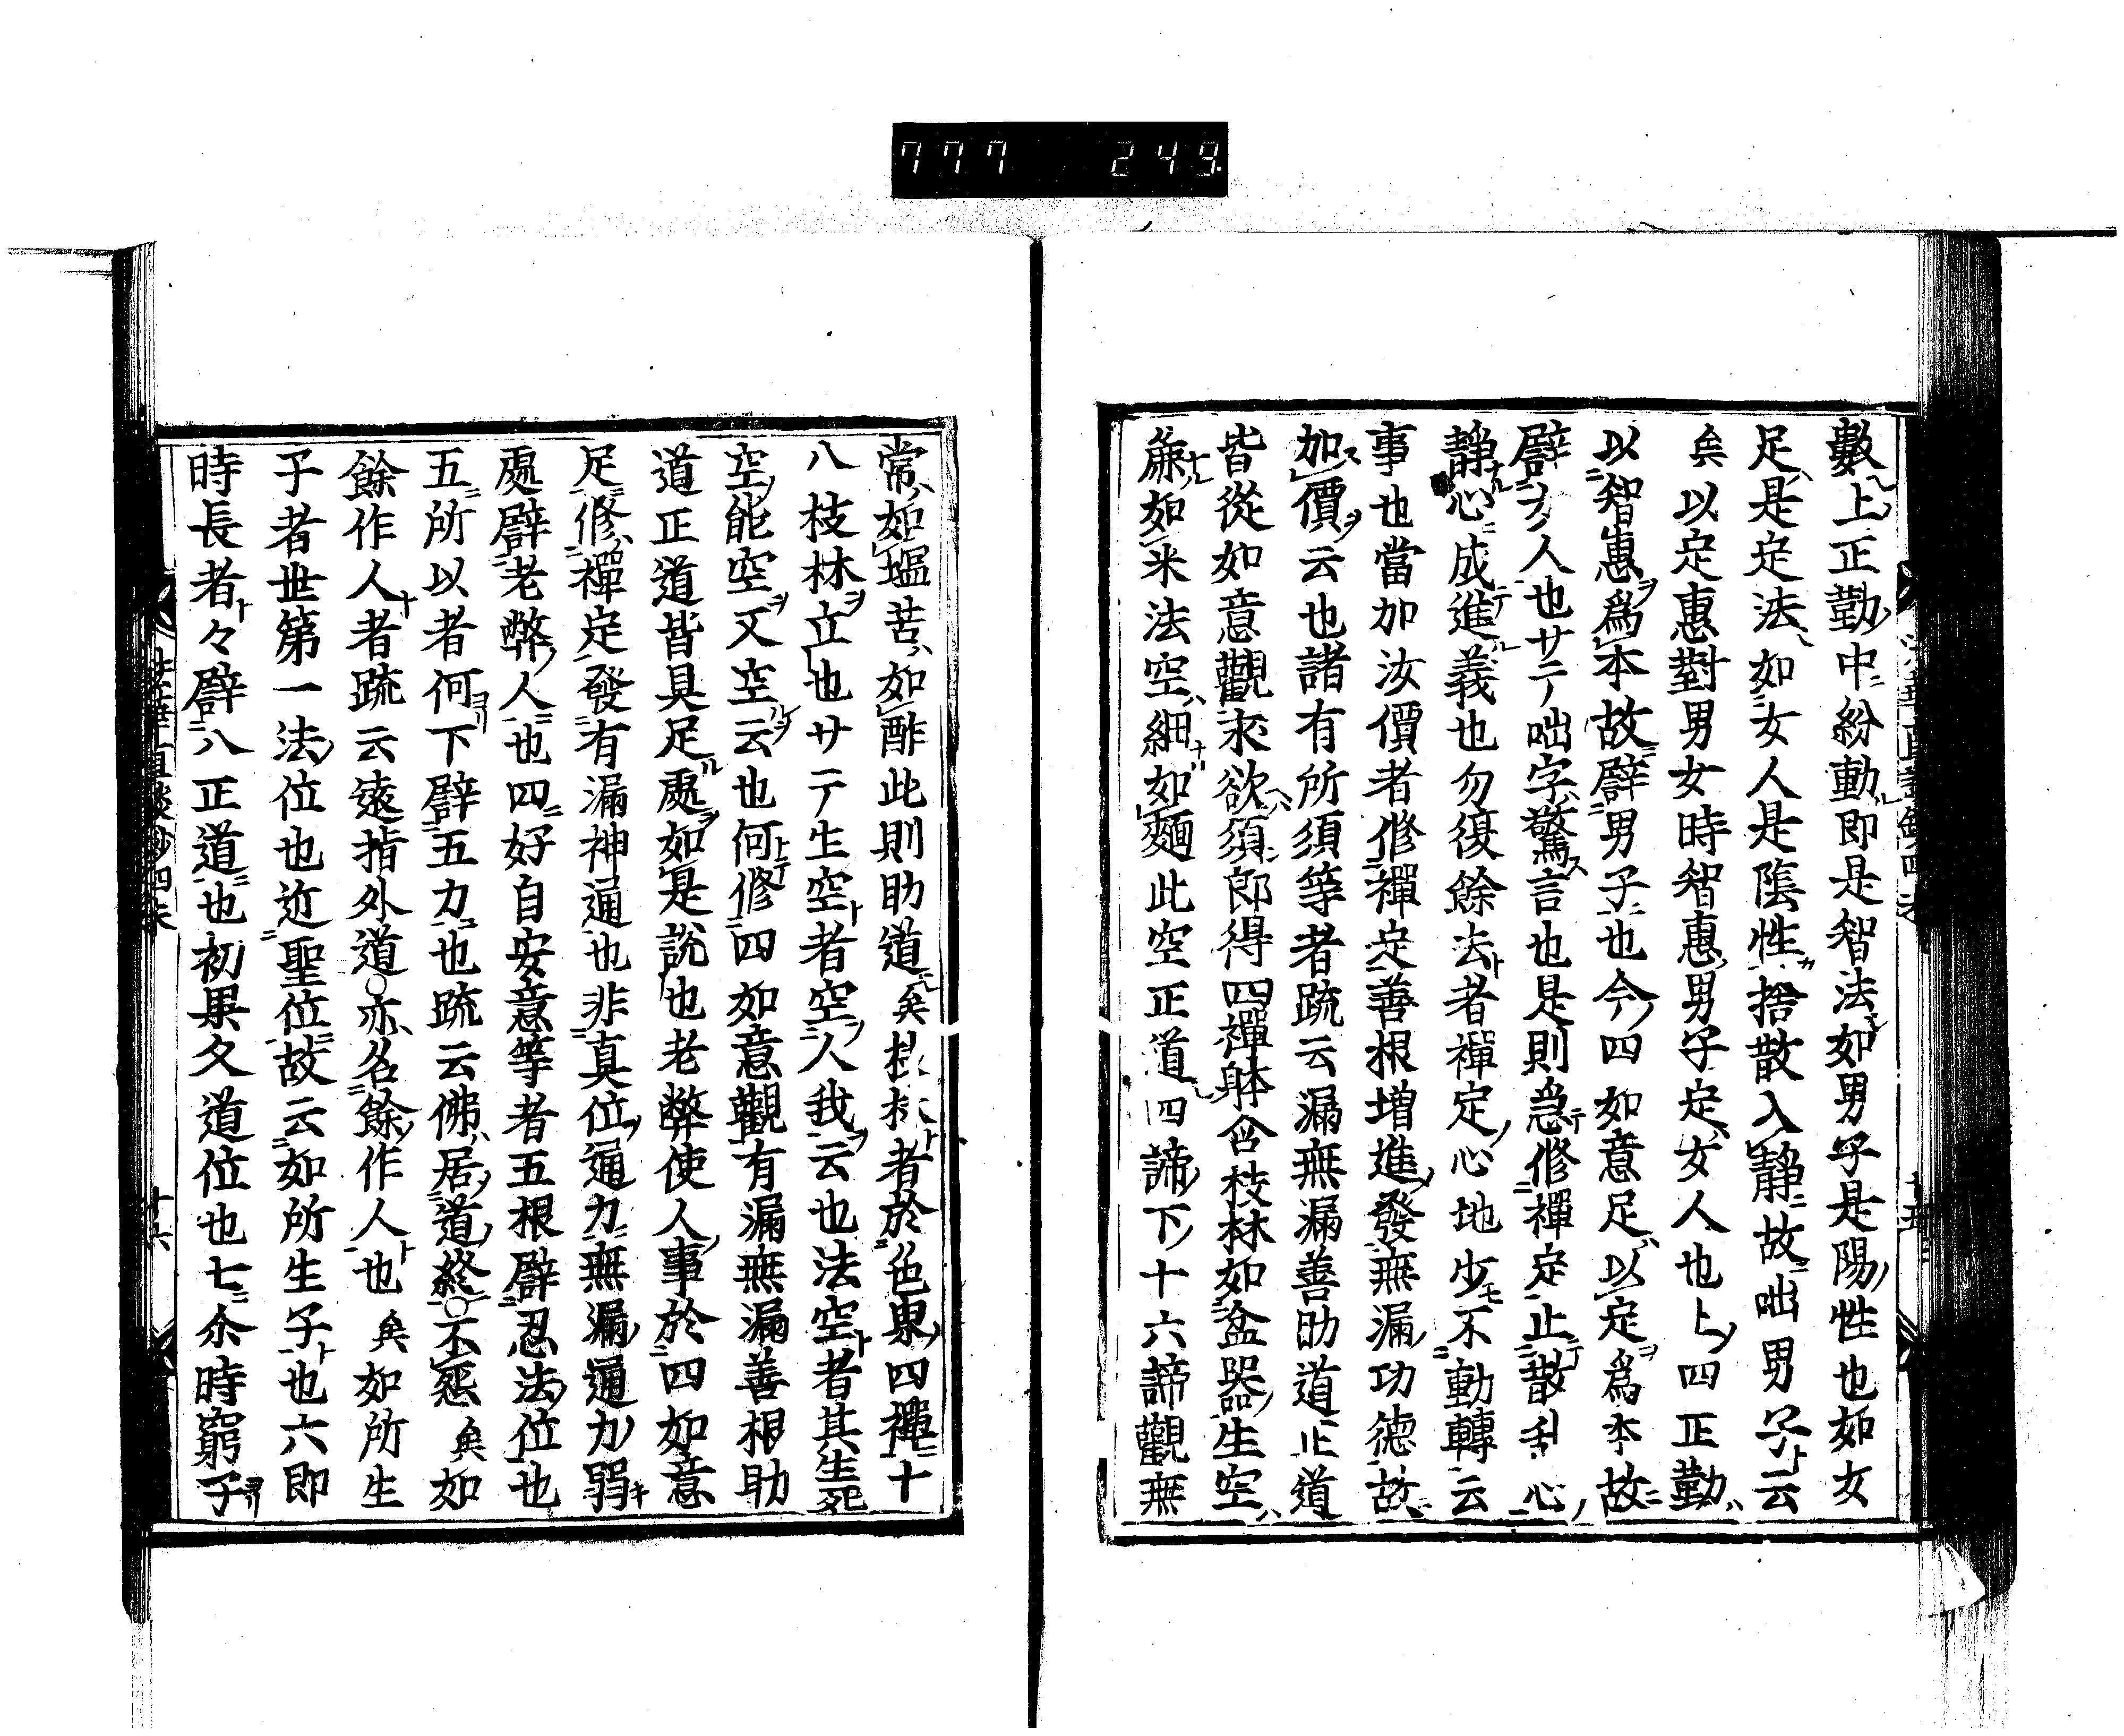 777 249
數上正勤中紛動即是智法如男子是陽性也如女
足是定法如女人是陰性捨散入靜故咄男子云
矣以定惠對男女時智惠男子定女人也上四正勤
以智惠爲本故譬男子也今四如意足以定爲本故
譬人也咄字驚言也是則急修禪定止散乱心
靜心成進義也勿復餘去者禪定心地少不動轉云
事也當加汝價者修禪定善根増進發無漏功徳故
加價云也諸有所須等者疏云漏無漏善助道正道
皆從如意觀求欲須即得四禪躰含枝林如盆器生空
簾如米法空細如麺此空正道四諦下十六諦觀無
常如塩苦如酢此則助道矣枝林者於色東四禪十
八枝林立也生空者空人我云也法空者其生死
空能空又空云也何修四如意觀有漏無漏善根助
道正道皆具足處如是説也老弊使人事於四如意
足修禪定發有漏神通也非真位通力無漏通力弱
處譬老弊人也四好自安意等者五根譬忍法位也
五所以者何下譬五力也疏云佛居道終○不惌矣如
餘作人者疏云遠指外道○亦名餘作人也矣如所生
子者世第一法位也近聖位故云如所生子也六即
時長者々譬八正道也初果久道位也七尒時窮子
十五
法華直談鈔四末
十六